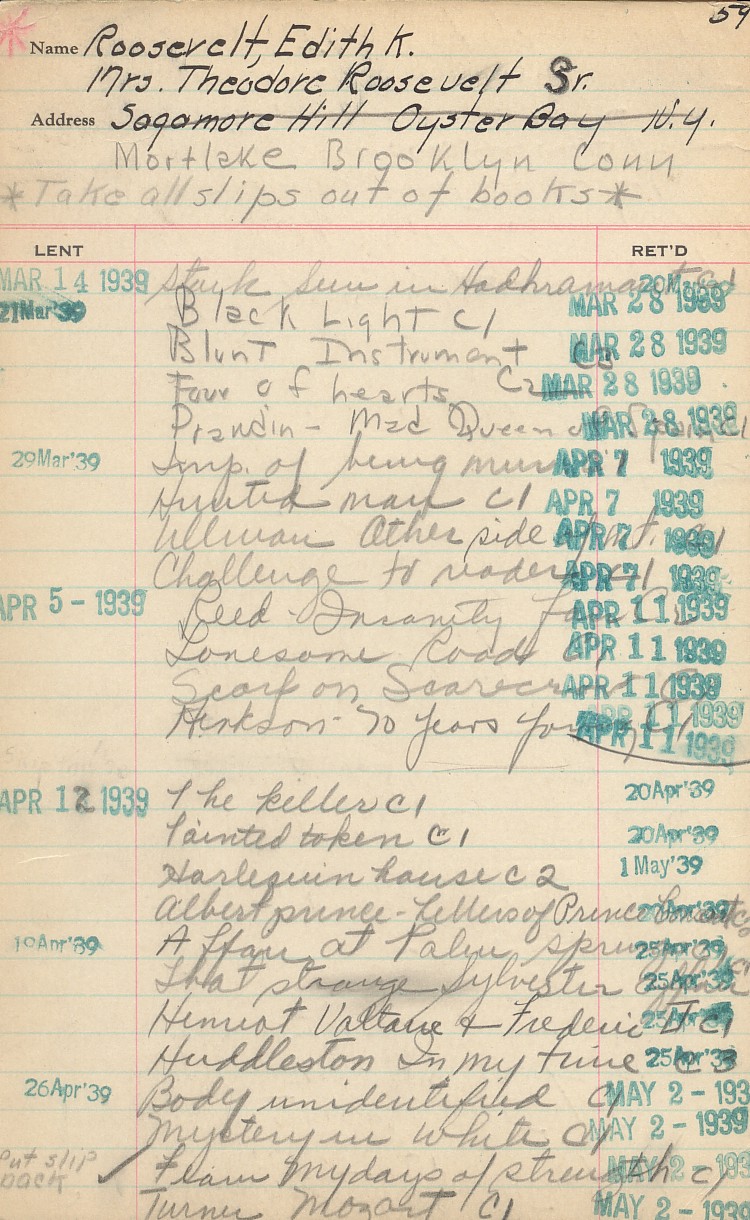 59
Name Roosevelt, Edith K.
Mrs. Theodore Roosevelt Sr.
Address Sagamore Hill Oyster Bay N.Y.
Mortlake Brooklyn Conn
*Take all slips out of books*
LENT RET'D
MAR 14 1939 Stark Sun in Hadhramaut
21 Mar '39 Black Light C1 MAR 28 1939
Blunt Instrument MAR 28 1939
Four of hearts C2 MAR 28 1939
Prawdin - Mad Queen of Spain C1 MAR 28 1939
29 Mar '39 Imp. of being APR 7 1939
Hunted man C1 APR 7 1939
Ullman Other side of mt. C1 APR 7 1939
Challenge to reader C1 APR 7 1939
APR 5 - 1939 Reed - Insanity APR 11 1939
Lonesome Road APR 11 1939
Scarf on Scarecrow APR 11 1939
70 Years APR 11 1939
APR 11 1939
APR 12 1939 The killer C1 20 Apr '39
Painted token C1 20 Apr '39
Harlequin house C2 1 May '39
Albert prince - Letters of Prince Consort
19 Apr '39 Affair at Palm springs 25 Apr '39
That strange Sylvester 25 Apr '39
Henriot Voltaire & Frederic II C1 25 Apr '39
Huddleston In my time C3 25 Apr '39
26 Apr '39 Body unidentified C1 MAY 2 - 193
Mystery in White C1 MAY 2 - 1939
Put slip back ✓ From my days of strength C1 MAY 2 - 193
Turner Mozart C1 MAY 2 - 1939